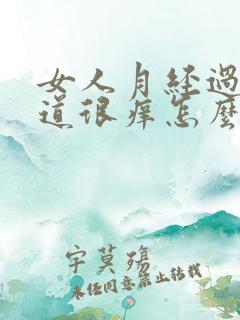 女人月经过
道很痒怎麽
宇莫殇
未经同意禁止转载